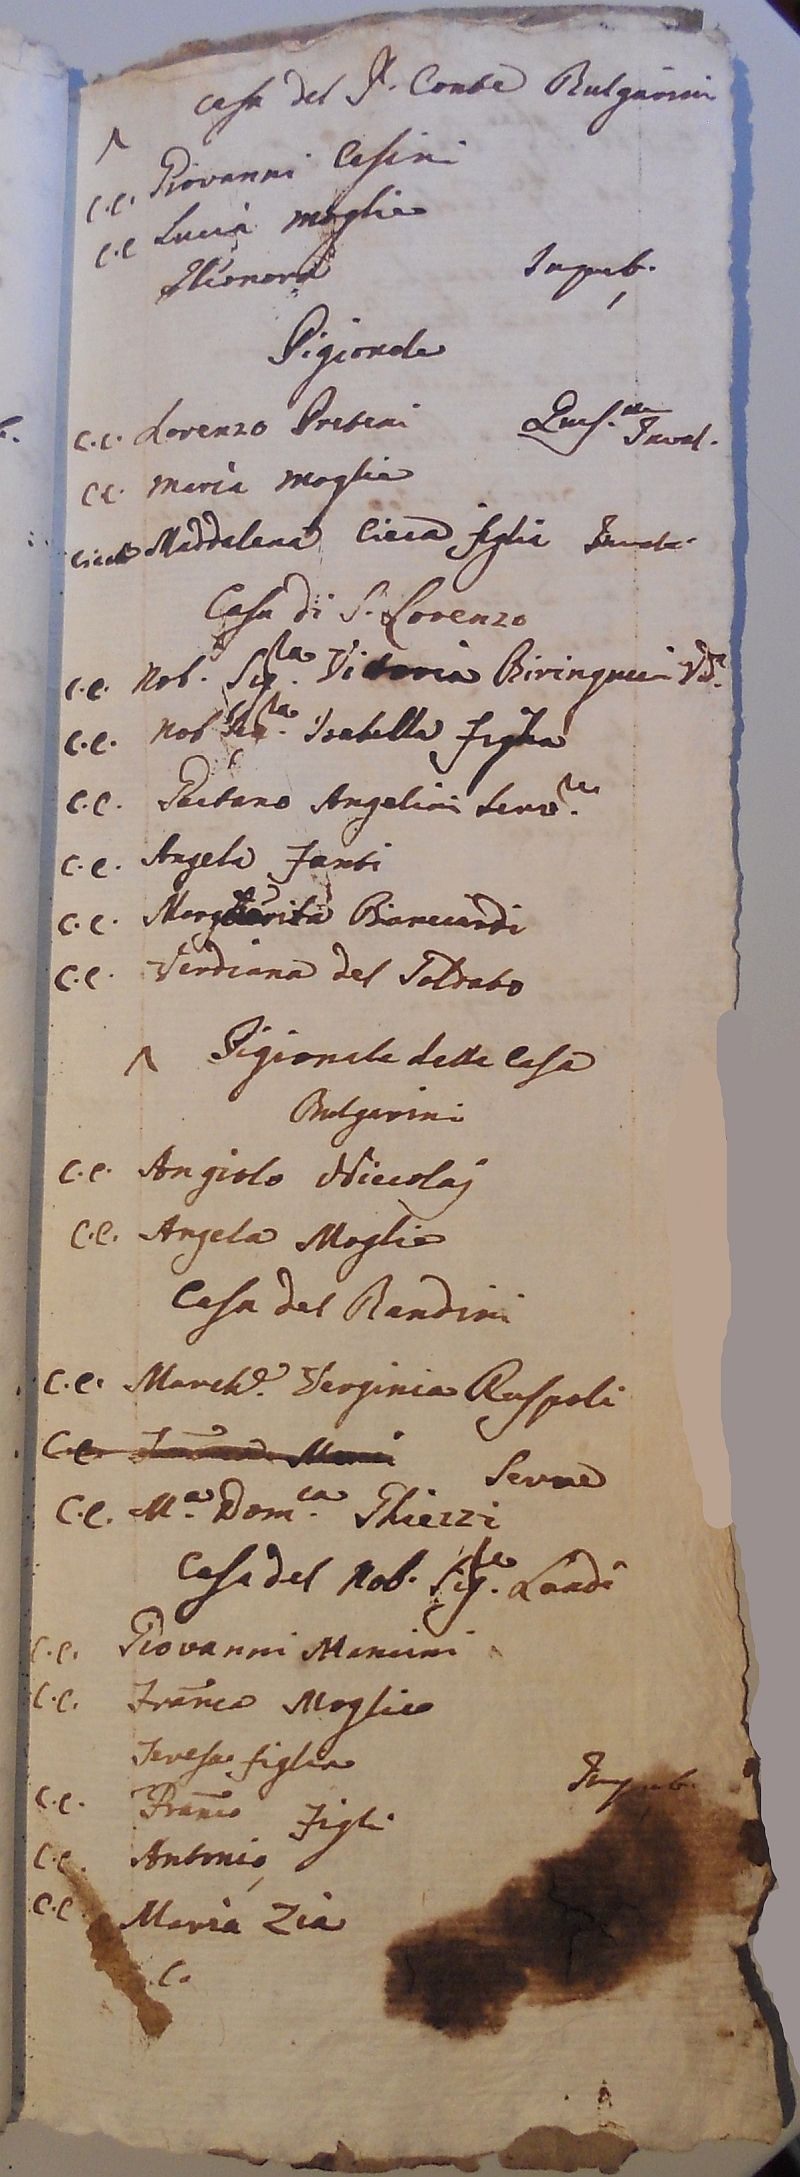 Casa del S. Conte Bulgarini
C.C. Giovanni Casini
C.C Lucia moglie
Eleonora Impub.
Pigionale
C.C. Lorenzo Preteni Inval.
C.C. Maria Moglie
Maddalena Cieca figlia
Casa di S. Lorenzo
C.C. Nob. Sig.ra Vittoria Biringucci Vd.
C.C. Nob Sig.ra Isabella figlia
C.C. Gaetano Angelini Serv.re
C.C. Angela Fanti
C.C. Margherita Bianciardi
C.C. Verdiana del Toldato
Pigionale della Casa
Bulgarini
C.C. Angiolo Niccolaj
C.C. Angela Moglie
Casa del Bandini
C.C. March. Verginia Ruspoli
C.C.
Serve
C.C. M.a Dom.ca Ghiezzi
Casa del Nob. Sig.re Landi
C.C. Giovanni Mancini
C.C. Franca Moglie
Teresa figlia Impub.
C.C. Franco figli
C.C. Antonio
C.C Maria Zia
C.